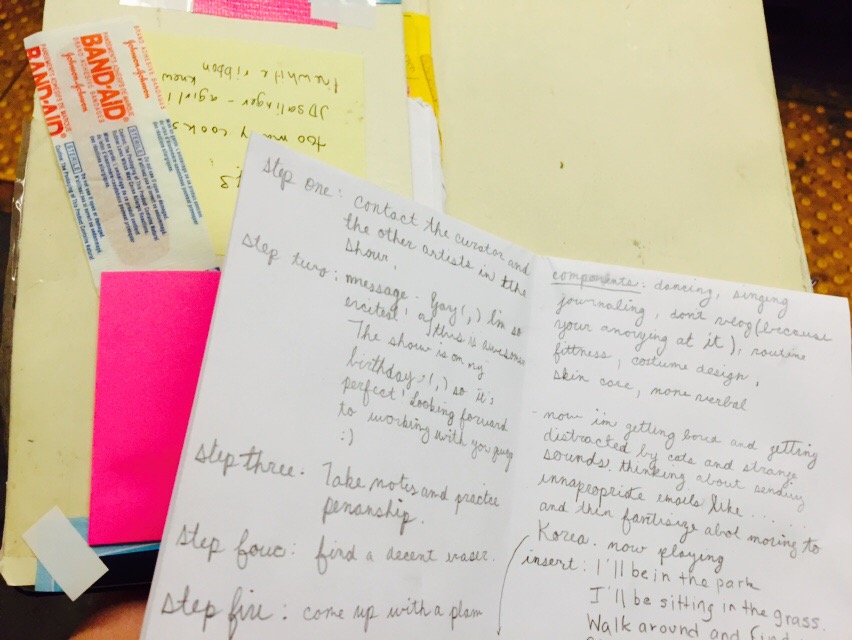 BAND-AID
BRAND ADHESIVE BANDAGES
Johnson & Johnson
BAND-AID
Johnson & Johnson
STERILE
STERILE
too many cooks
JD salinger - a girl i
knew
white ribbon
step one: contact the curator and
the other artists in the
show.
step two: message. Yay(,) I'm so
excited! or this is awesome
The show is on my
birthday,(,) so it's
perfect! Looking forward
to working with you guys
:)
step three. Take notes and practice
penanship.
step four: find a decent eraser.
step five: come up with a plan
components: dancing, singing
journaling, don't vlog (because
your annoying at it), routine
fittness, costume design,
skin care, none verbal
- now im getting bored and getting
distracted by cats and strange
sounds. thinking about sending
innapropriate emails like ......
and then fantisize abot moving to
Korea. now playing
insert: I'll be in the park
I'll be sitting in the grass.
Walk around and find